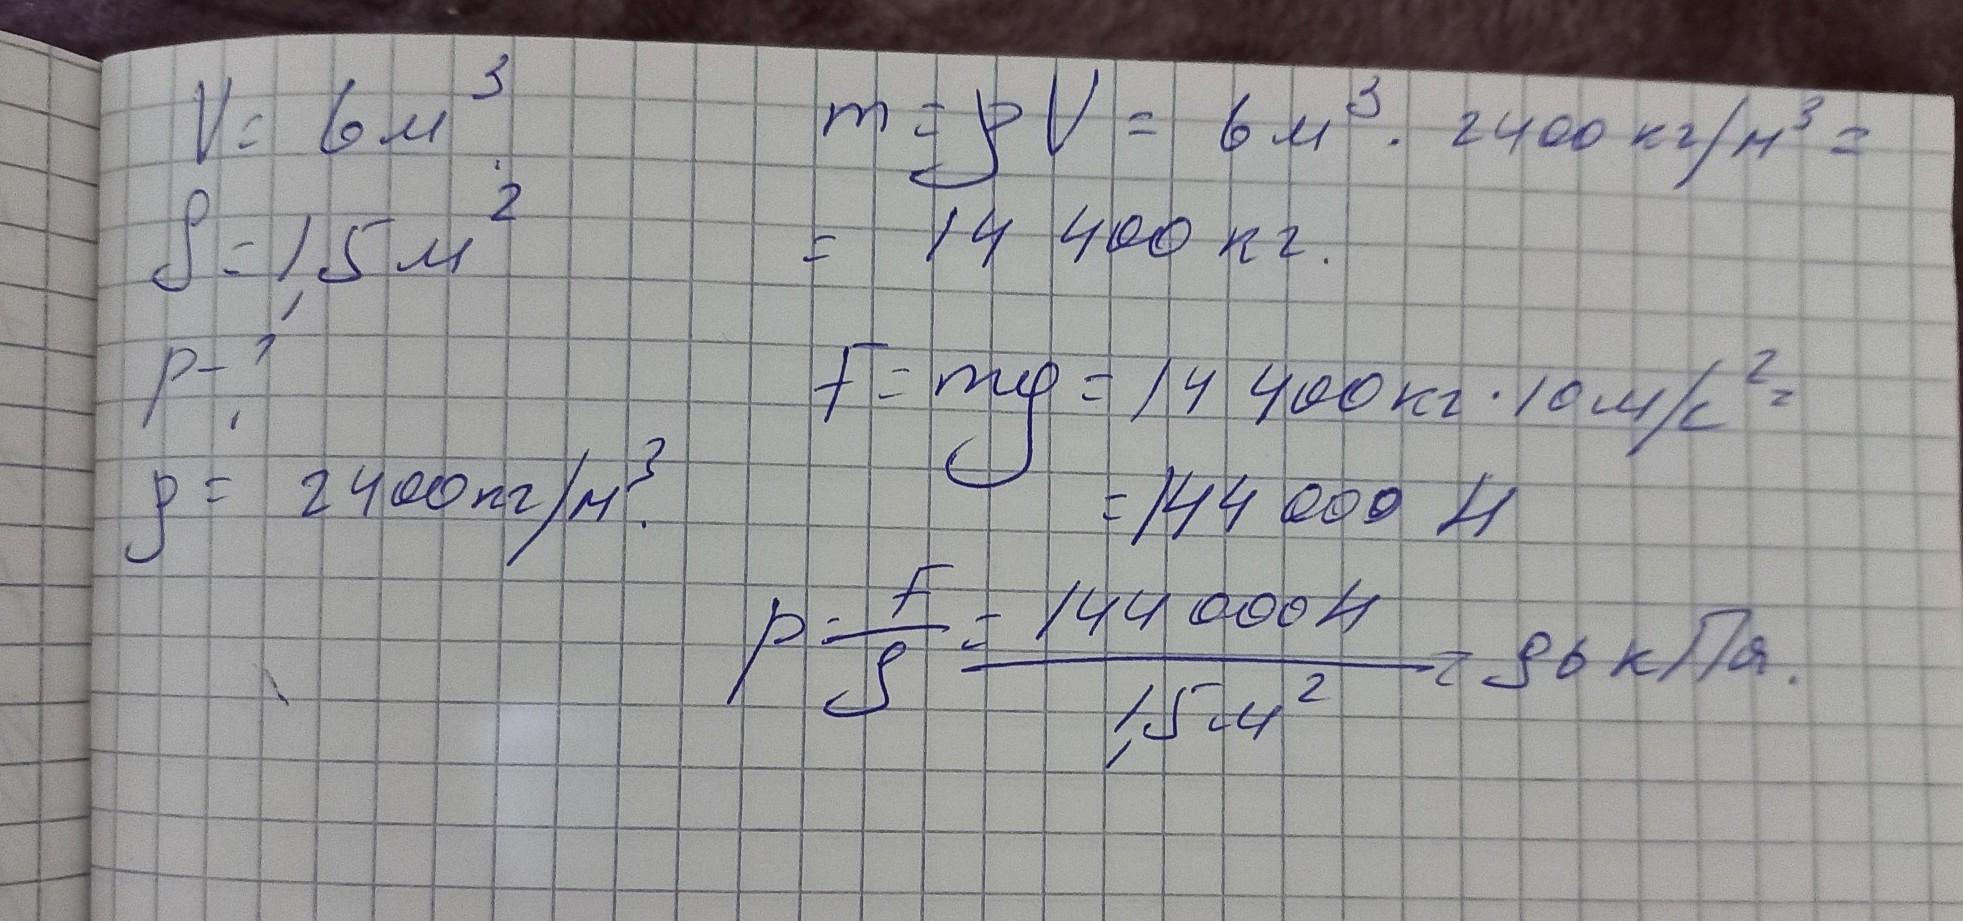 V = 6 м³
S = 1,5 м²
p - ?
ρ = 2400 кг/м³.
m = ρV = 6 м³ · 2400 кг/м³ =
= 14 400 кг.
F = mg = 14 400 кг · 10 м/с² =
= 144 000 Н
p = F/S = 144 000 Н / 1,5 м² = 96 кПа.